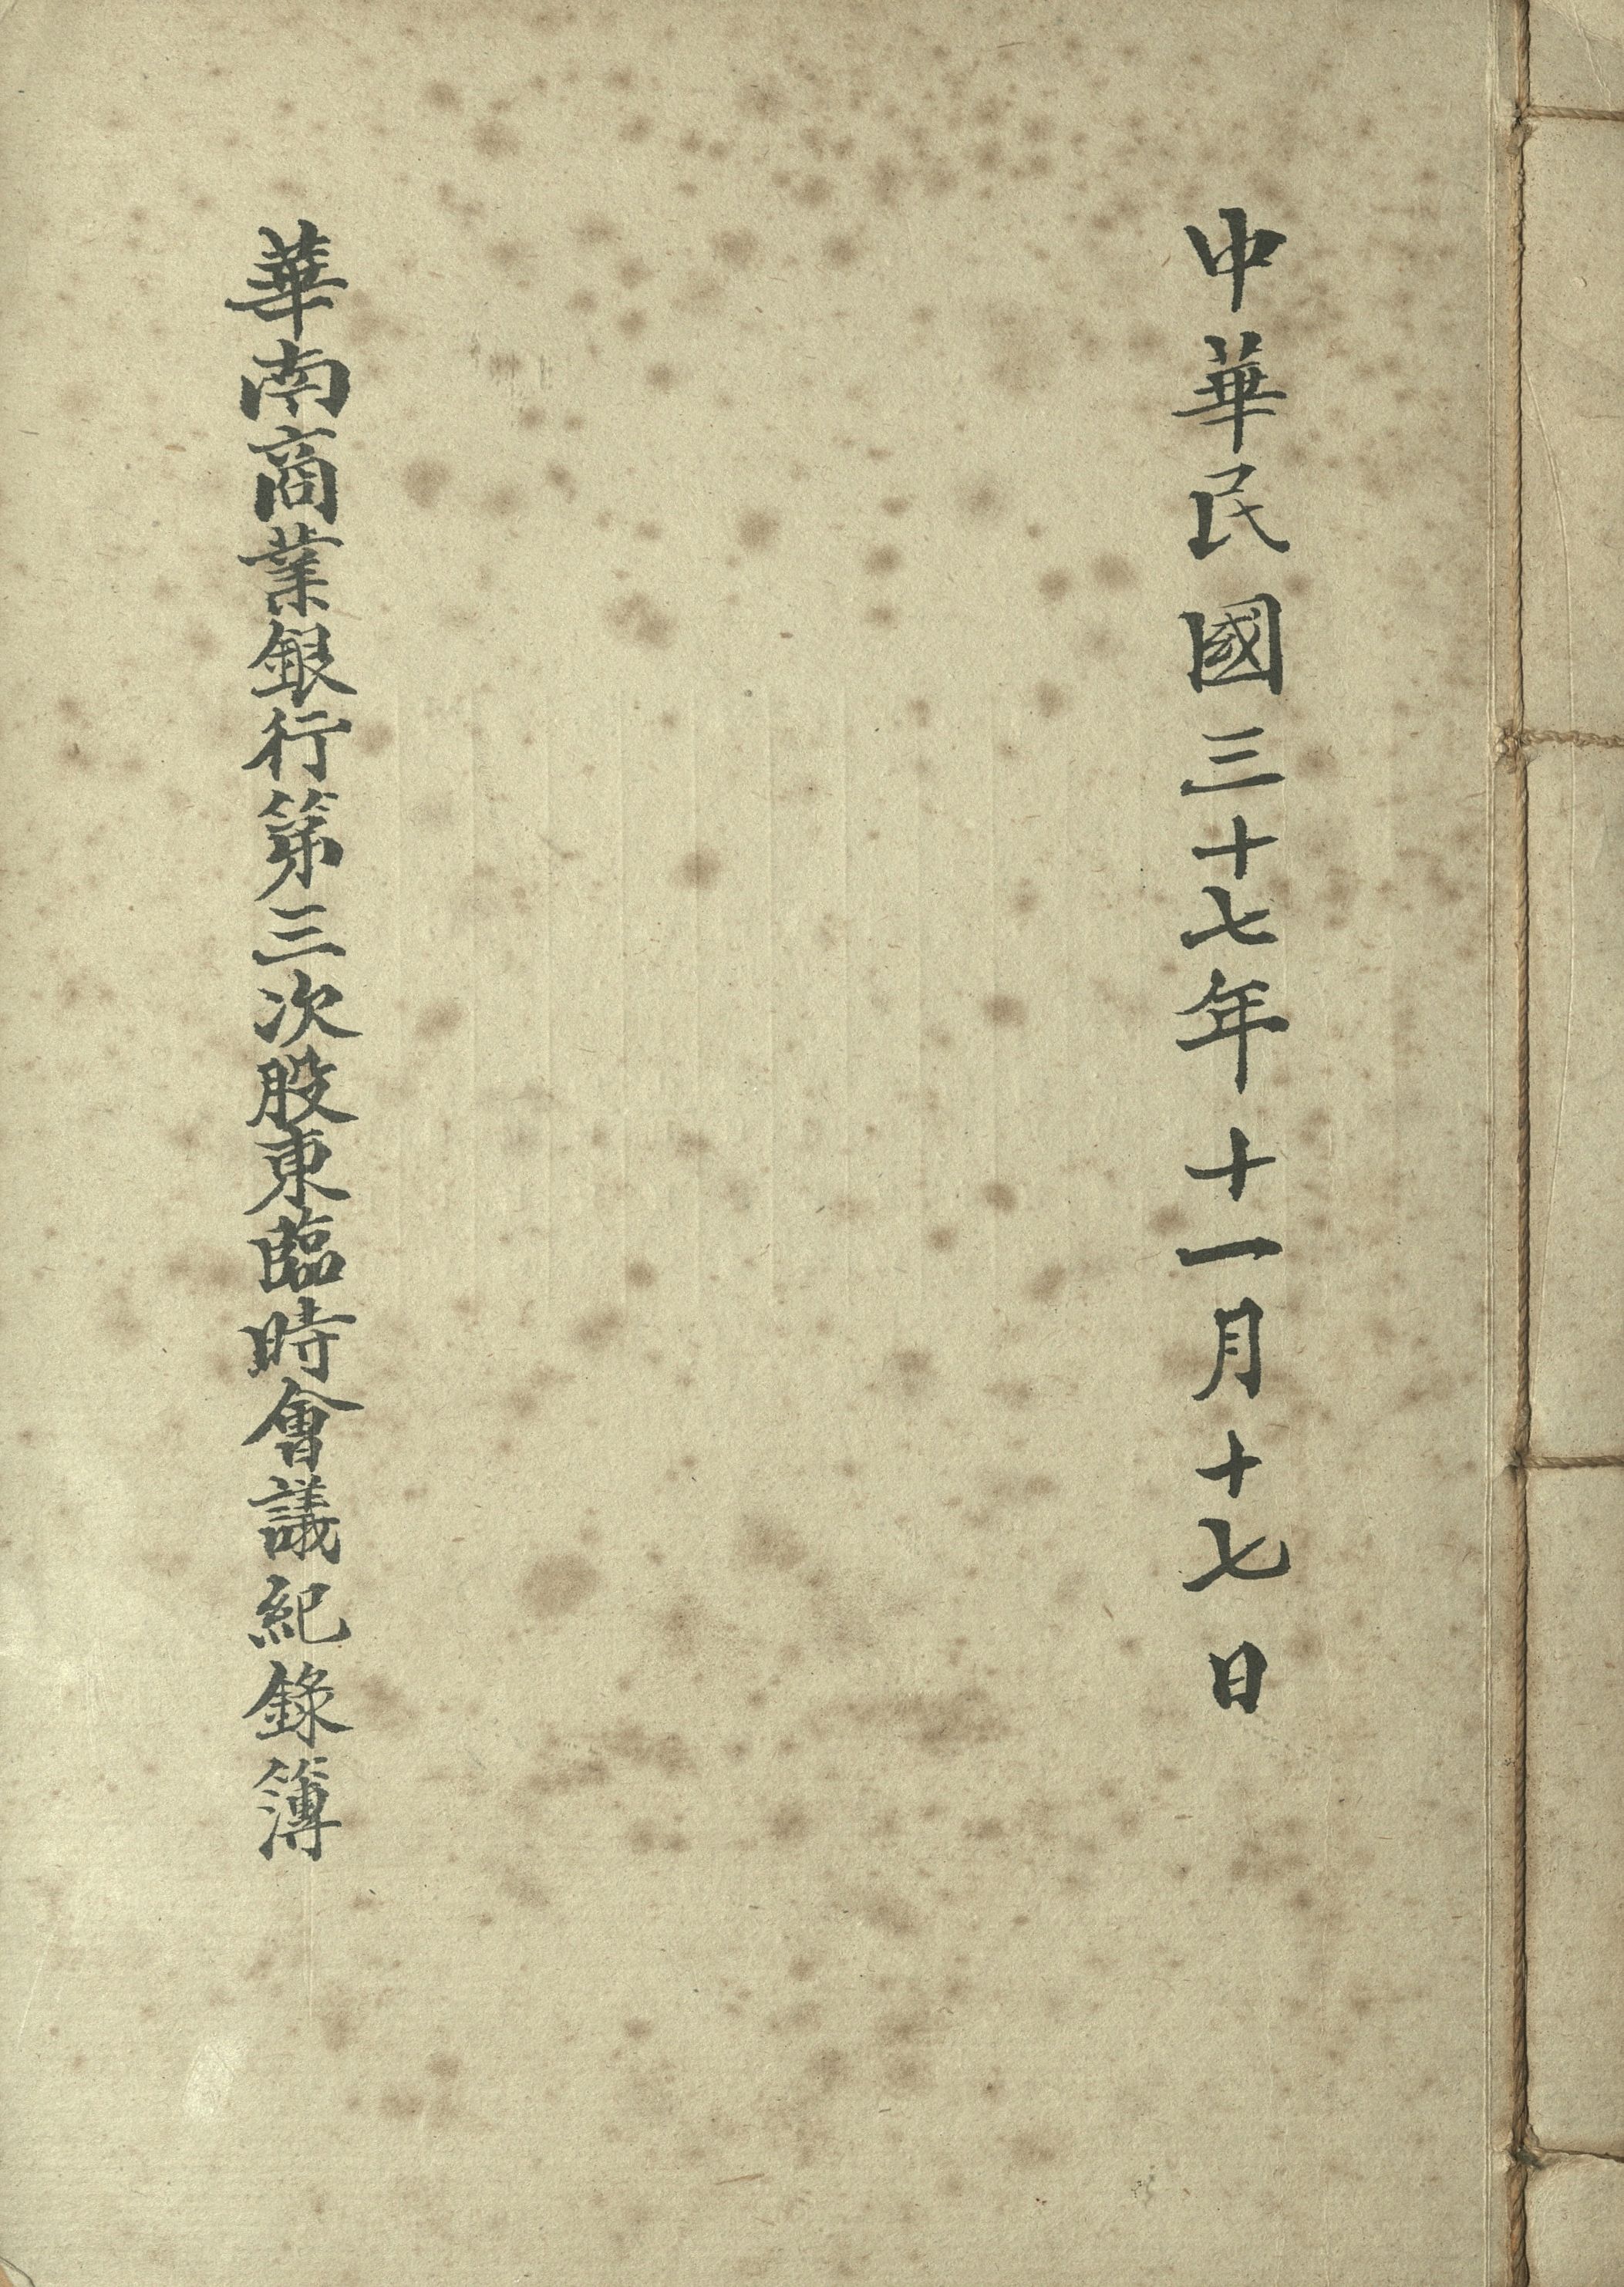 中華民國三十七年十一月十七日
華南商業銀行第三次股東臨時會議紀錄簿